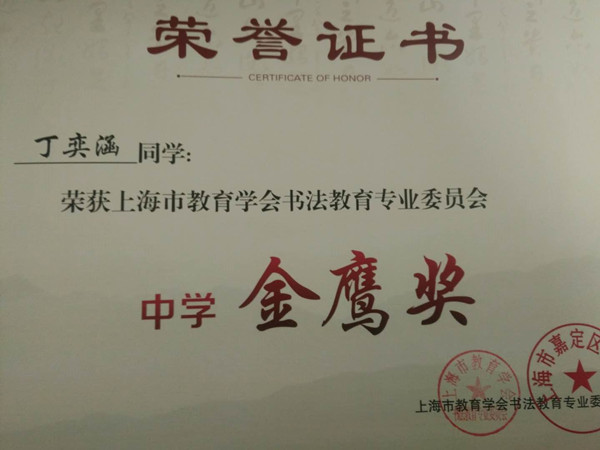 荣誉证书
CERTIFICATE OF HONOR
丁奕涵同学:
荣获上海市教育学会书法教育专业委员会
中学 金鹰奖
上海市教育学会
上海市嘉定区
上海市教育学会书法教育专业委